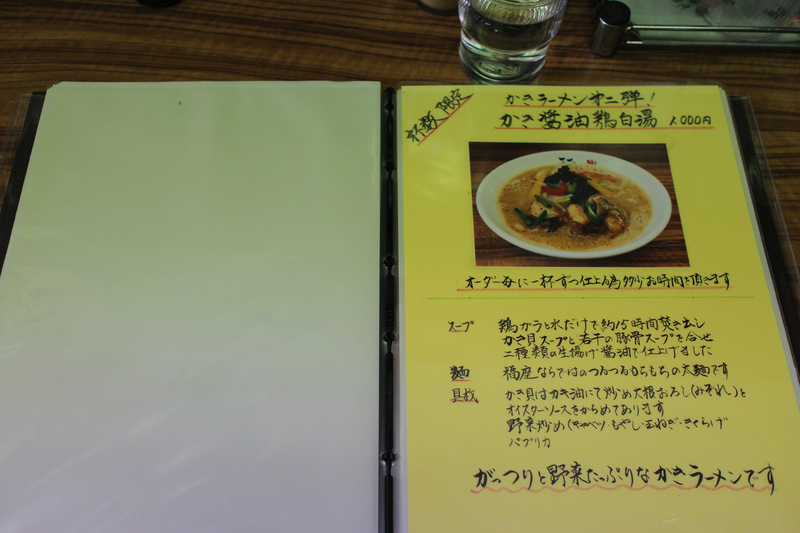 杯数限定
かきラーメン第二弾!
かき醤油鶏白湯 1,000円
オーダー毎に一杯ずつ仕上げる為少々お時間を頂きます
スープ 鶏ガラと水だけで約15時間焚き出し
かき貝スープと若干の豚骨スープを合せ
二種類の生揚げ醤油で仕上げました
麺 福座ならではのつるつるもちもちの太麺です
具材 かき貝はかき油にて炒め大根おろし(みぞれ)と
オイスターソースをからめてあります
野菜炒め(キャベツ・もやし・玉ねぎ・きくらげ
パプリカ
がっつりと野菜たっぷりなかきラーメンです